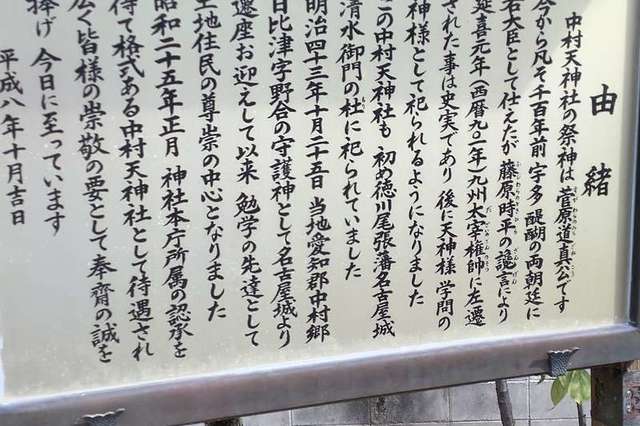 由緒
中村天神社の祭神は菅原道真公です
今から凡そ千百年前 宇多 醍醐の両朝廷に
右大臣として仕えたが 藤原時平の讒言により
延喜元年(西暦九〇一年)九州太宰権帥に左遷
された事は史実であり 後に天神様 学問の
神様として祀られるようになりました
この中村天神社も 初め徳川尾張藩名古屋城
清水御門の杜に祀られていました
明治四十三年十月二十五日 当地愛知郡中村郷
日比津字野谷の守護神として名古屋城より
遷座お迎えして以来 勉学の先達として
土地住民の尊崇の中心となりました
昭和二十五年正月 神社本庁所属の認承を
得て格式ある中村天神社として待遇され
広く皆様の崇敬の要として奉齋の誠を
捧げ 今日に至っています
平成八年十月吉日